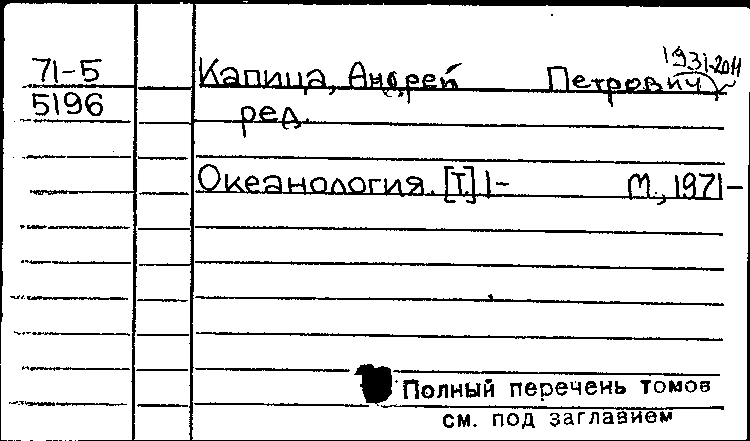 1931-2011
71-5 Капица, Андрей Петрович
5196 ред.
Океанология. [Т.] 1- М., 1971-
Полный перечень томов
см. под заглавием